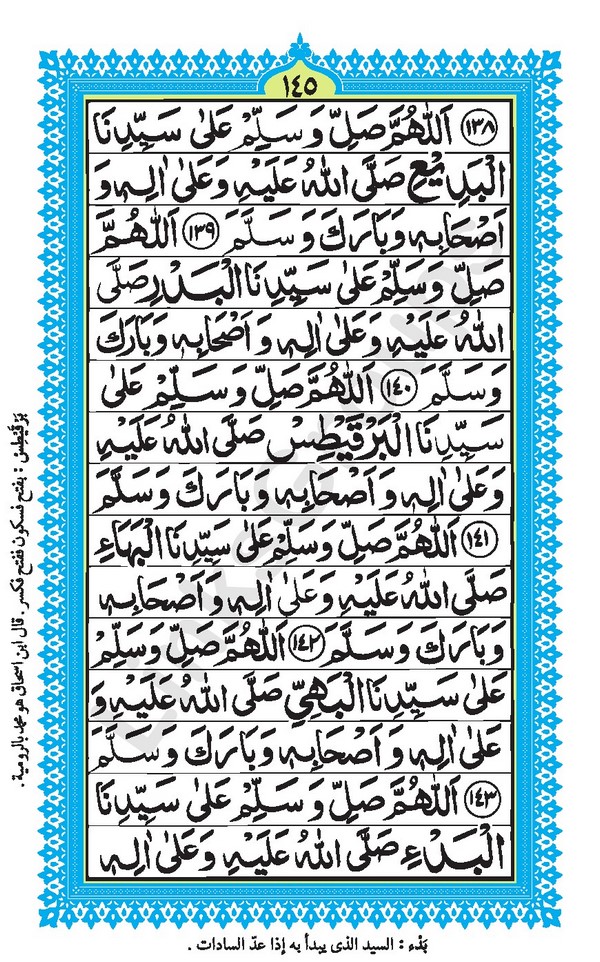 ١٤٥
١٣٨ اَللّٰهُمَّ صَلِّ وَ سَلِّمْ عَلٰى سَيِّدِنَا
الْبَدِيْعِ صَلَّى اللّٰهُ عَلَيْهِ وَعَلٰى اٰلِهٖ وَ
اَصْحَابِهٖ وَبَارَكَ وَ سَلَّمَ ١٣٩ اَللّٰهُمَّ
صَلِّ وَسَلِّمْ عَلٰى سَيِّدِنَا الْبَدْرِ صَلَّى
اللّٰهُ عَلَيْهِ وَعَلٰى اٰلِهٖ وَ اَصْحَابِهٖ وَبَارَكَ
وَسَلَّمَ ١٤٠ اَللّٰهُمَّ صَلِّ وَ سَلِّمْ عَلٰى
سَيِّدِنَا الْبَرْقَيْطِسْ صَلَّى اللّٰهُ عَلَيْهِ
وَعَلٰى اٰلِهٖ وَ اَصْحَابِهٖ وَ بَارَكَ وَسَلَّمَ
١٤١ اَللّٰهُمَّ صَلِّ وَسَلِّمْ عَلٰى سَيِّدِنَا الْبَهَاءِ
صَلَّى اللّٰهُ عَلَيْهِ وَعَلٰى اٰلِهٖ وَ اَصْحَابِهٖ
وَبَارَكَ وَسَلَّمَ ١٤٢ اَللّٰهُمَّ صَلِّ وَسَلِّمْ
عَلٰى سَيِّدِنَا الْبَهِيِّ صَلَّى اللّٰهُ عَلَيْهِ وَ
عَلٰى اٰلِهٖ وَ اَصْحَابِهٖ وَبَارَكَ وَسَلَّمَ
١٤٣ اَللّٰهُمَّ صَلِّ وَ سَلِّمْ عَلٰى سَيِّدِنَا
الْبَدْءِ صَلَّى اللّٰهُ عَلَيْهِ وَعَلٰى اٰلِهٖ
بَدْء : السيد الذى يبدأ به إذا عدّ السادات .
بَرْقَيْطِسْ : بفتح فسكون ففتح فكسر . قال ابن اسحاق هو محمد بالرومية .